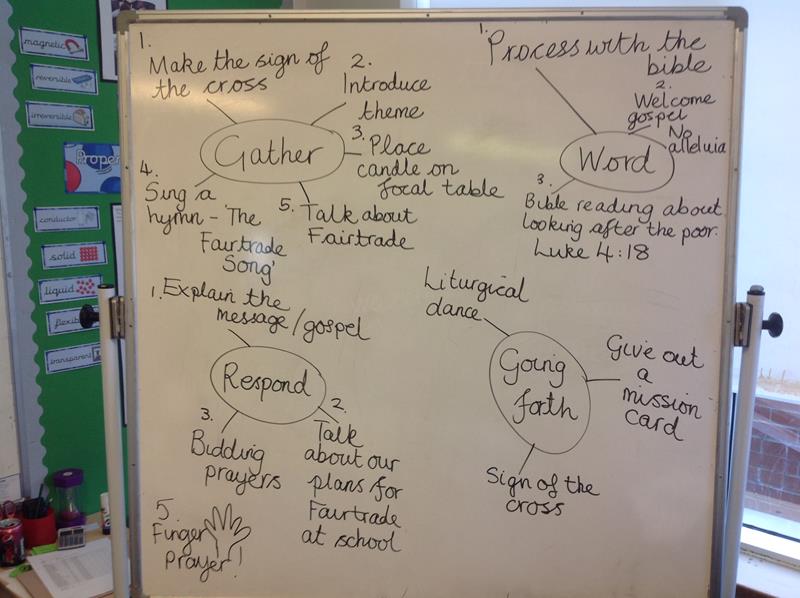 magnetic
reversible
irreversible
Proper
conductor
solid
liquid
flexib
transparent
1.
Make the sign of
the cross
2.
Introduce
theme
Gather
3. Place
candle on
focal table
4.
Sing a
hymn - The
Fairtrade
Song'
5. Talk about
Fairtrade
1.
Process with the
bible
2.
Welcome
gospel
No
alleluia
Word
3.
Bible reading about
looking after the poor.
Luke 4:18
1. Explain the
message/gospel
Respond
3.
Bidding
prayers
2.
Talk
about our
plans for
Fairtrade
at school
5
Finger
Prayer!
Liturgical
dance
Going
forth
Give out
a
mission
card
Sign of the
cross